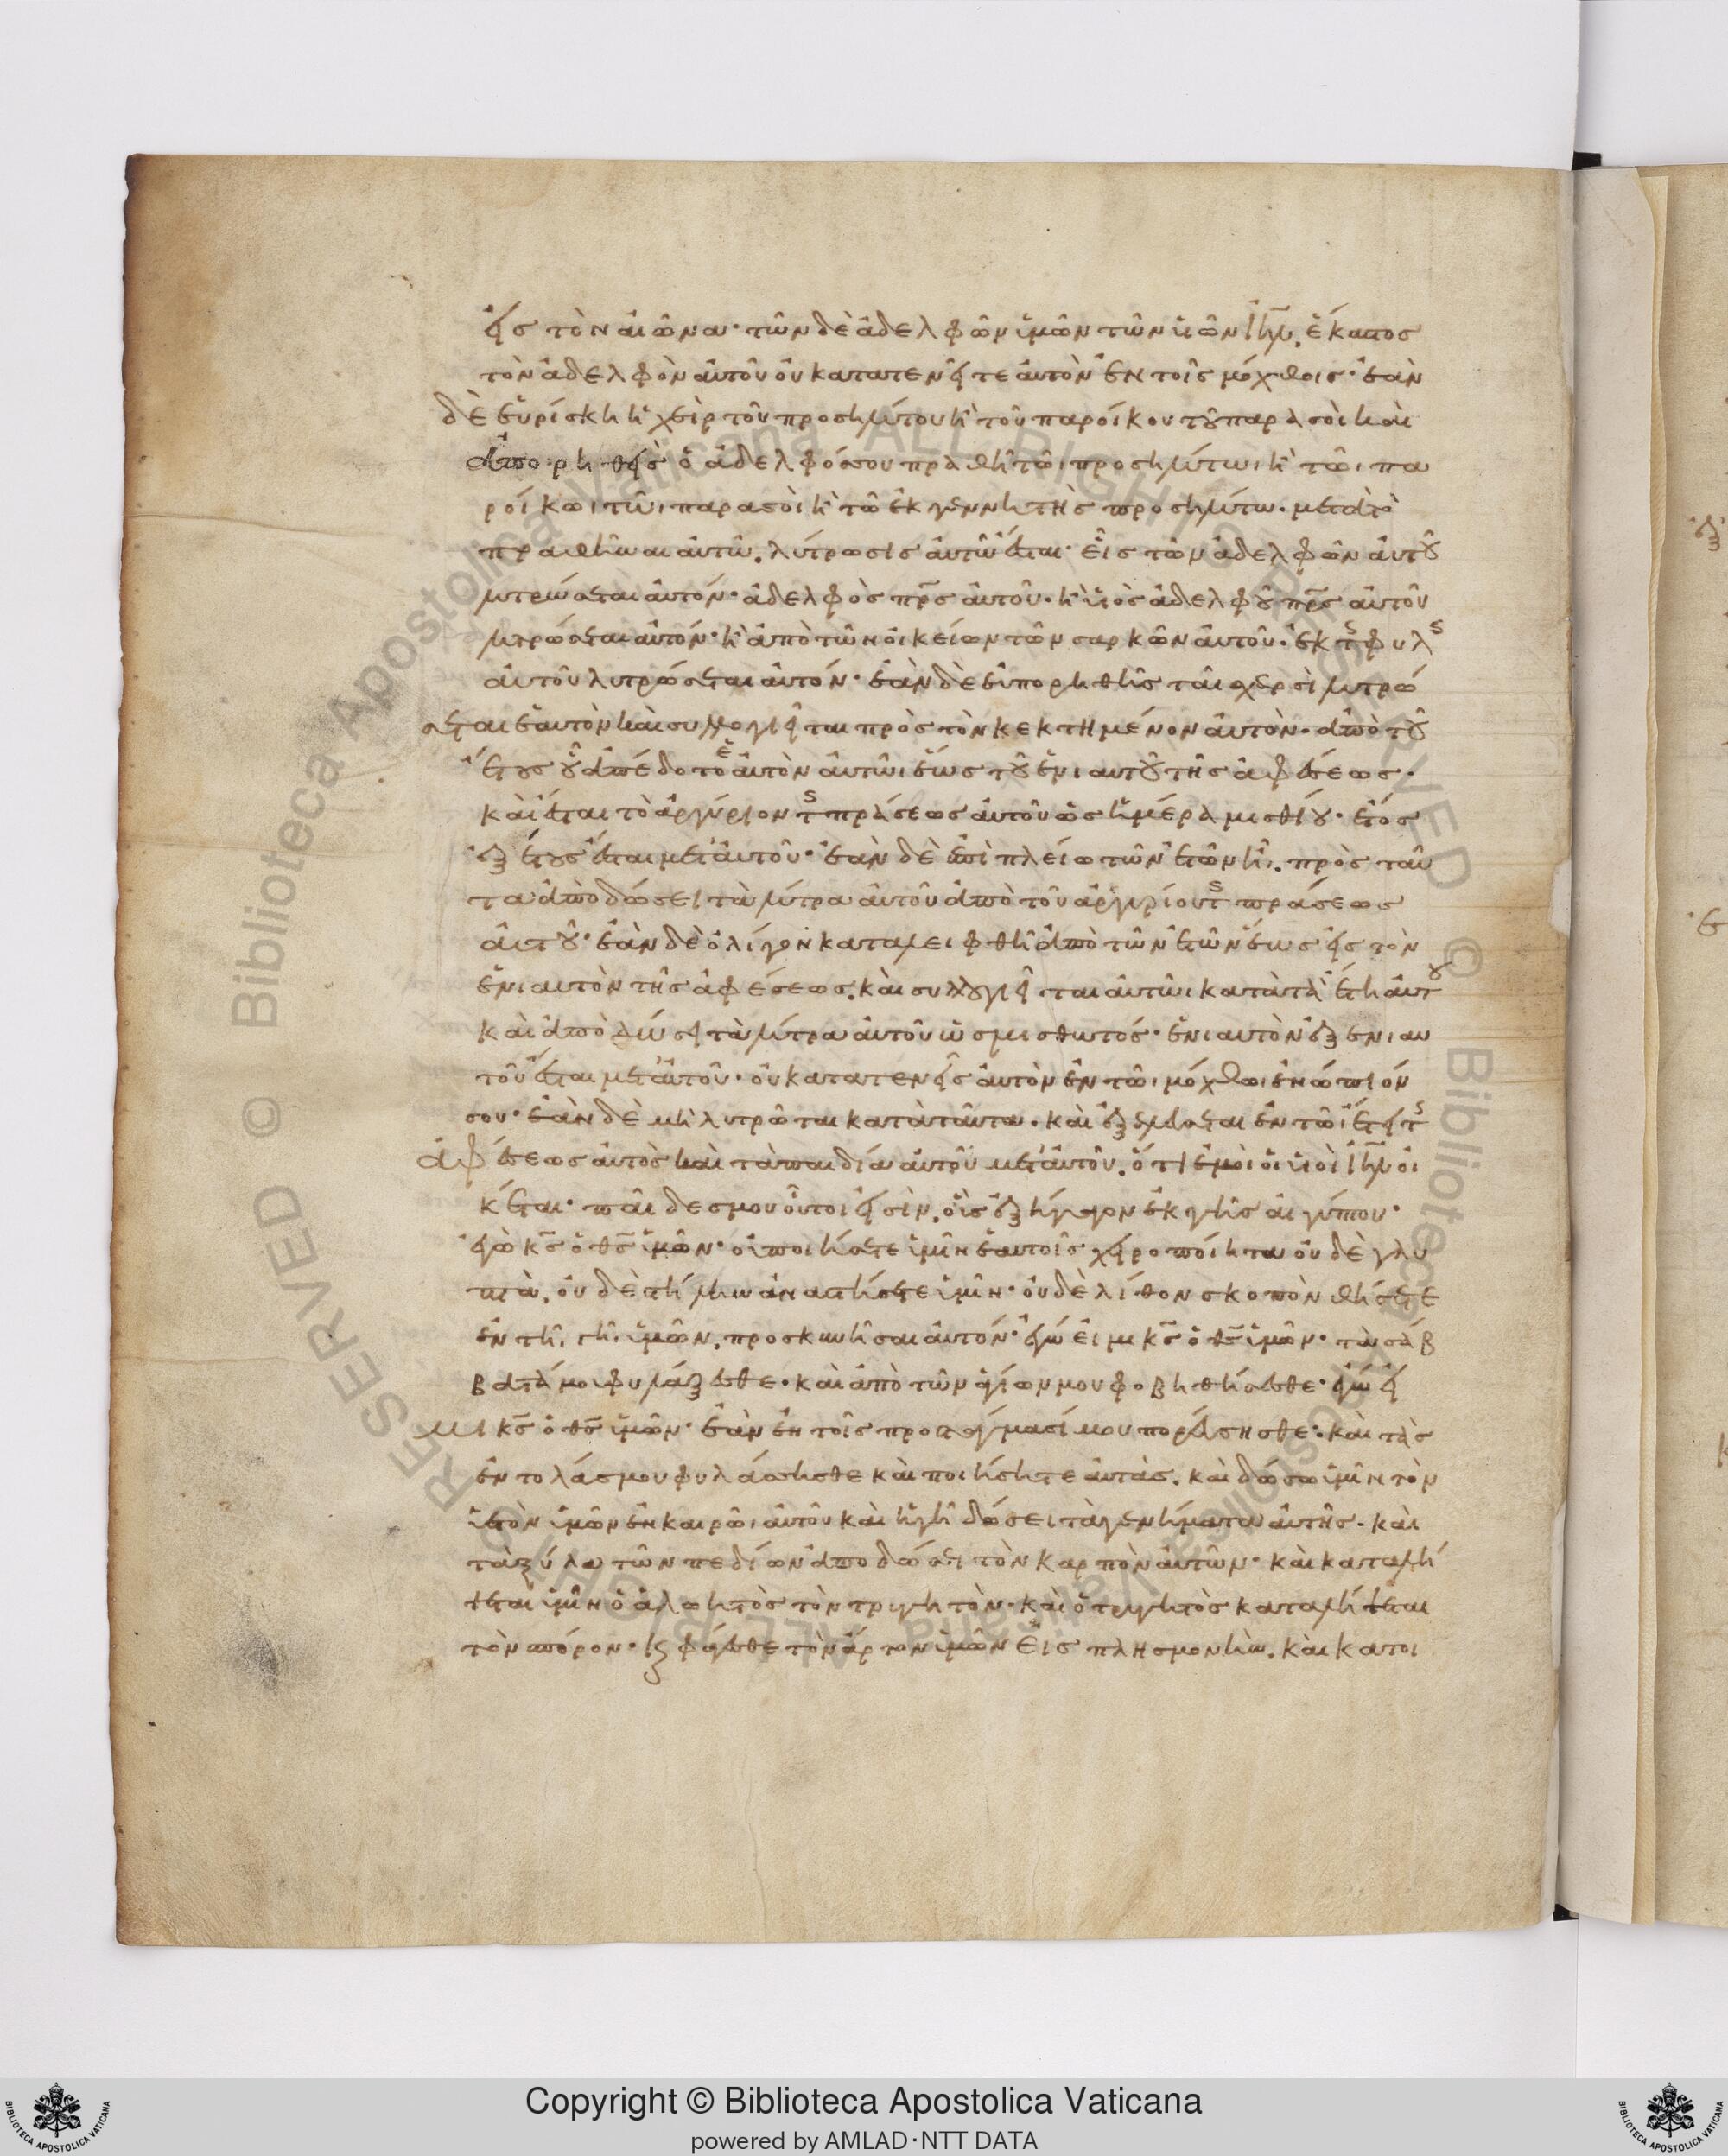 εἰς τὸν αἰῶνα· τῶν δὲ ἀδελφῶν ὑμῶν τῶν υἱῶν ἰη̅λ. ἕκαστος
τὸν ἀδελφὸν αὐτοῦ οὐ κατατενεῖτε αὐτὸν ἐν τοῖς μόχθοις· ἐὰν
δὲ εὑρίσκη ἡ χεὶρ τοῦ προσηλύτου ἢ τοῦ παροίκου τοῦ παρὰ σοὶ καὶ
ἀπορηθεὶς ὁ ἀδελφός σου πραθῆ τῶι προσηλύτωι ἢ τῶι πα
ροίκωι τῶι παρα σοὶ ἢ τῶ ἐκ γεννητῆς προσηλύτω. μετὰ τὸ
πραθῆναι αὐτῶ. λύτρωσις αὐτῶ ἔσται· εἷς τῶν ἀδελφῶν αὐτοῦ
λυτρώσεται αὐτόν· ἀδελφὸς πρ̅ς αὐτοῦ· ἢ υἱὸς ἀδελφοῦ πρ̅ς αὐτοῦ
λυτρώσεται αὐτόν· ἢ ἀπὸ τῶν οἰκείων τῶν σαρκῶν αὐτοῦ· ἐκ τς φυλς
αὐτοῦ λυτρώσεται αὐτόν· ἐὰν δὲ εὐπορηθεὶς ταῖς χερσὶ λυτρώ
σεται ἑαυτὸν καὶ συλλογιεῖται πρὸς τὸν κεκτημένον αὐτὸν· ἀπὸ τοῦ
ἔτους οὗ ἀπέδοτο ἑαυτὸν αὐτῶι ἕως τοῦ ἐνιαυτοῦ τῆς ἀφέσεως·
καὶ ἔσται τὸ ἀργύριον τς πράσεως αὐτοῦ ὡς ἡμέρα μισθίου· ἔτος
ἐξ ἔτους ἔσται μετ' αὐτοῦ· ἐὰν δὲ ἐπὶ πλείω τῶν ἐτῶν ἦ. πρὸς ταῦ
τα ἀποδώσει τὰ λύτρα αὐτοῦ ἀπὸ τοῦ ἀργυρίου τς πράσεως
αὐτοῦ· ἐὰν δὲ ὀλίγον καταλειφθῆ ἀπὸ τῶν ἐτῶν ἕως εἰς τὸν
ἐνιαυτὸν τῆς ἀφέσεως. καὶ συλλογιεῖται αὐτῶι κατὰ τὰ ἔτη αὐτοῦ
καὶ ἀποδώσει τὰ λύτρα αὐτοῦ ὡς μισθωτός· ἐνιαυτὸν ἐξ ἐνιαυ
τοῦ ἔσται μετ' αὐτοῦ· οὐ κατατενεῖς αὐτὸν ἐν τῶι μόχθωι ἐνώπιόν
σου· ἐὰν δὲ μὴ λυτρῶται κατὰ ταῦτα. καὶ ἐξελεύσεται ἐν τῶι ἔτει τς
ἀφέσεως αὐτὸς καὶ τὰ παιδία αὐτοῦ μετ' αὐτοῦ. ὅτι ἐμοὶ οἱ υἱοὶ ἰη̅λ οἰ
κέται· παῖδες μου οὗτοι εἰσὶν. οὓς ἐξήγαγον ἐκ γῆς αἰγύπτου·
ἐγὼ κ̅ς ὁ θ̅ς ὑμῶν· οὐ ποιήσετε ὑμῖν ἑαυτοῖς χειροποίητα οὐδὲ γλυ
πτὰ. οὐδὲ στήλην ἀναστήσετε ὑμῖν· οὐδὲ λίθον σκοπὸν θήσετε
ἐν τῆι γῆι ὑμῶν. προσκυνῆσαι αὐτόν· ἐγώ εἰμι κ̅ς ὁ θ̅ς ὑμῶν· τὰ σάβ
βατά μοι φυλάξεσθε· καὶ ἀπὸ τῶν ἁγίων μου φοβηθήσεσθε· ἐγώ εἰ
μι κ̅ς ὁ θ̅ς ὑμῶν· ἐὰν ἐν τοῖς προστάγμασί μου πορεύησθε· καὶ τὰς
ἐντολάς μου φυλάσσησθε καὶ ποιήσητε αὐτάς. καὶ δώσω ὑμῖν τὸν
ὑετὸν ὑμῶν ἐν καιρῶι αὐτοῦ καὶ ἡ γῆ δώσει τὰ γενήματα αὐτῆς. καὶ
τὰ ξύλα τῶν πεδίων ἀποδώσει τὸν καρπὸν αὐτῶν· καὶ καταλή
ψεται ὑμῖν ὁ ἀλοητὸς τὸν τρυγητὸν· καὶ ὁ τρυγητὸς καταλήψεται
τὸν σπόρον· καὶ φάγεσθε τὸν ἄρτον ὑμῶν εἰς πλησμονὴν. καὶ κατοι
Copyright © Biblioteca Apostolica Vaticana
powered by AMLAD·NTT DATA